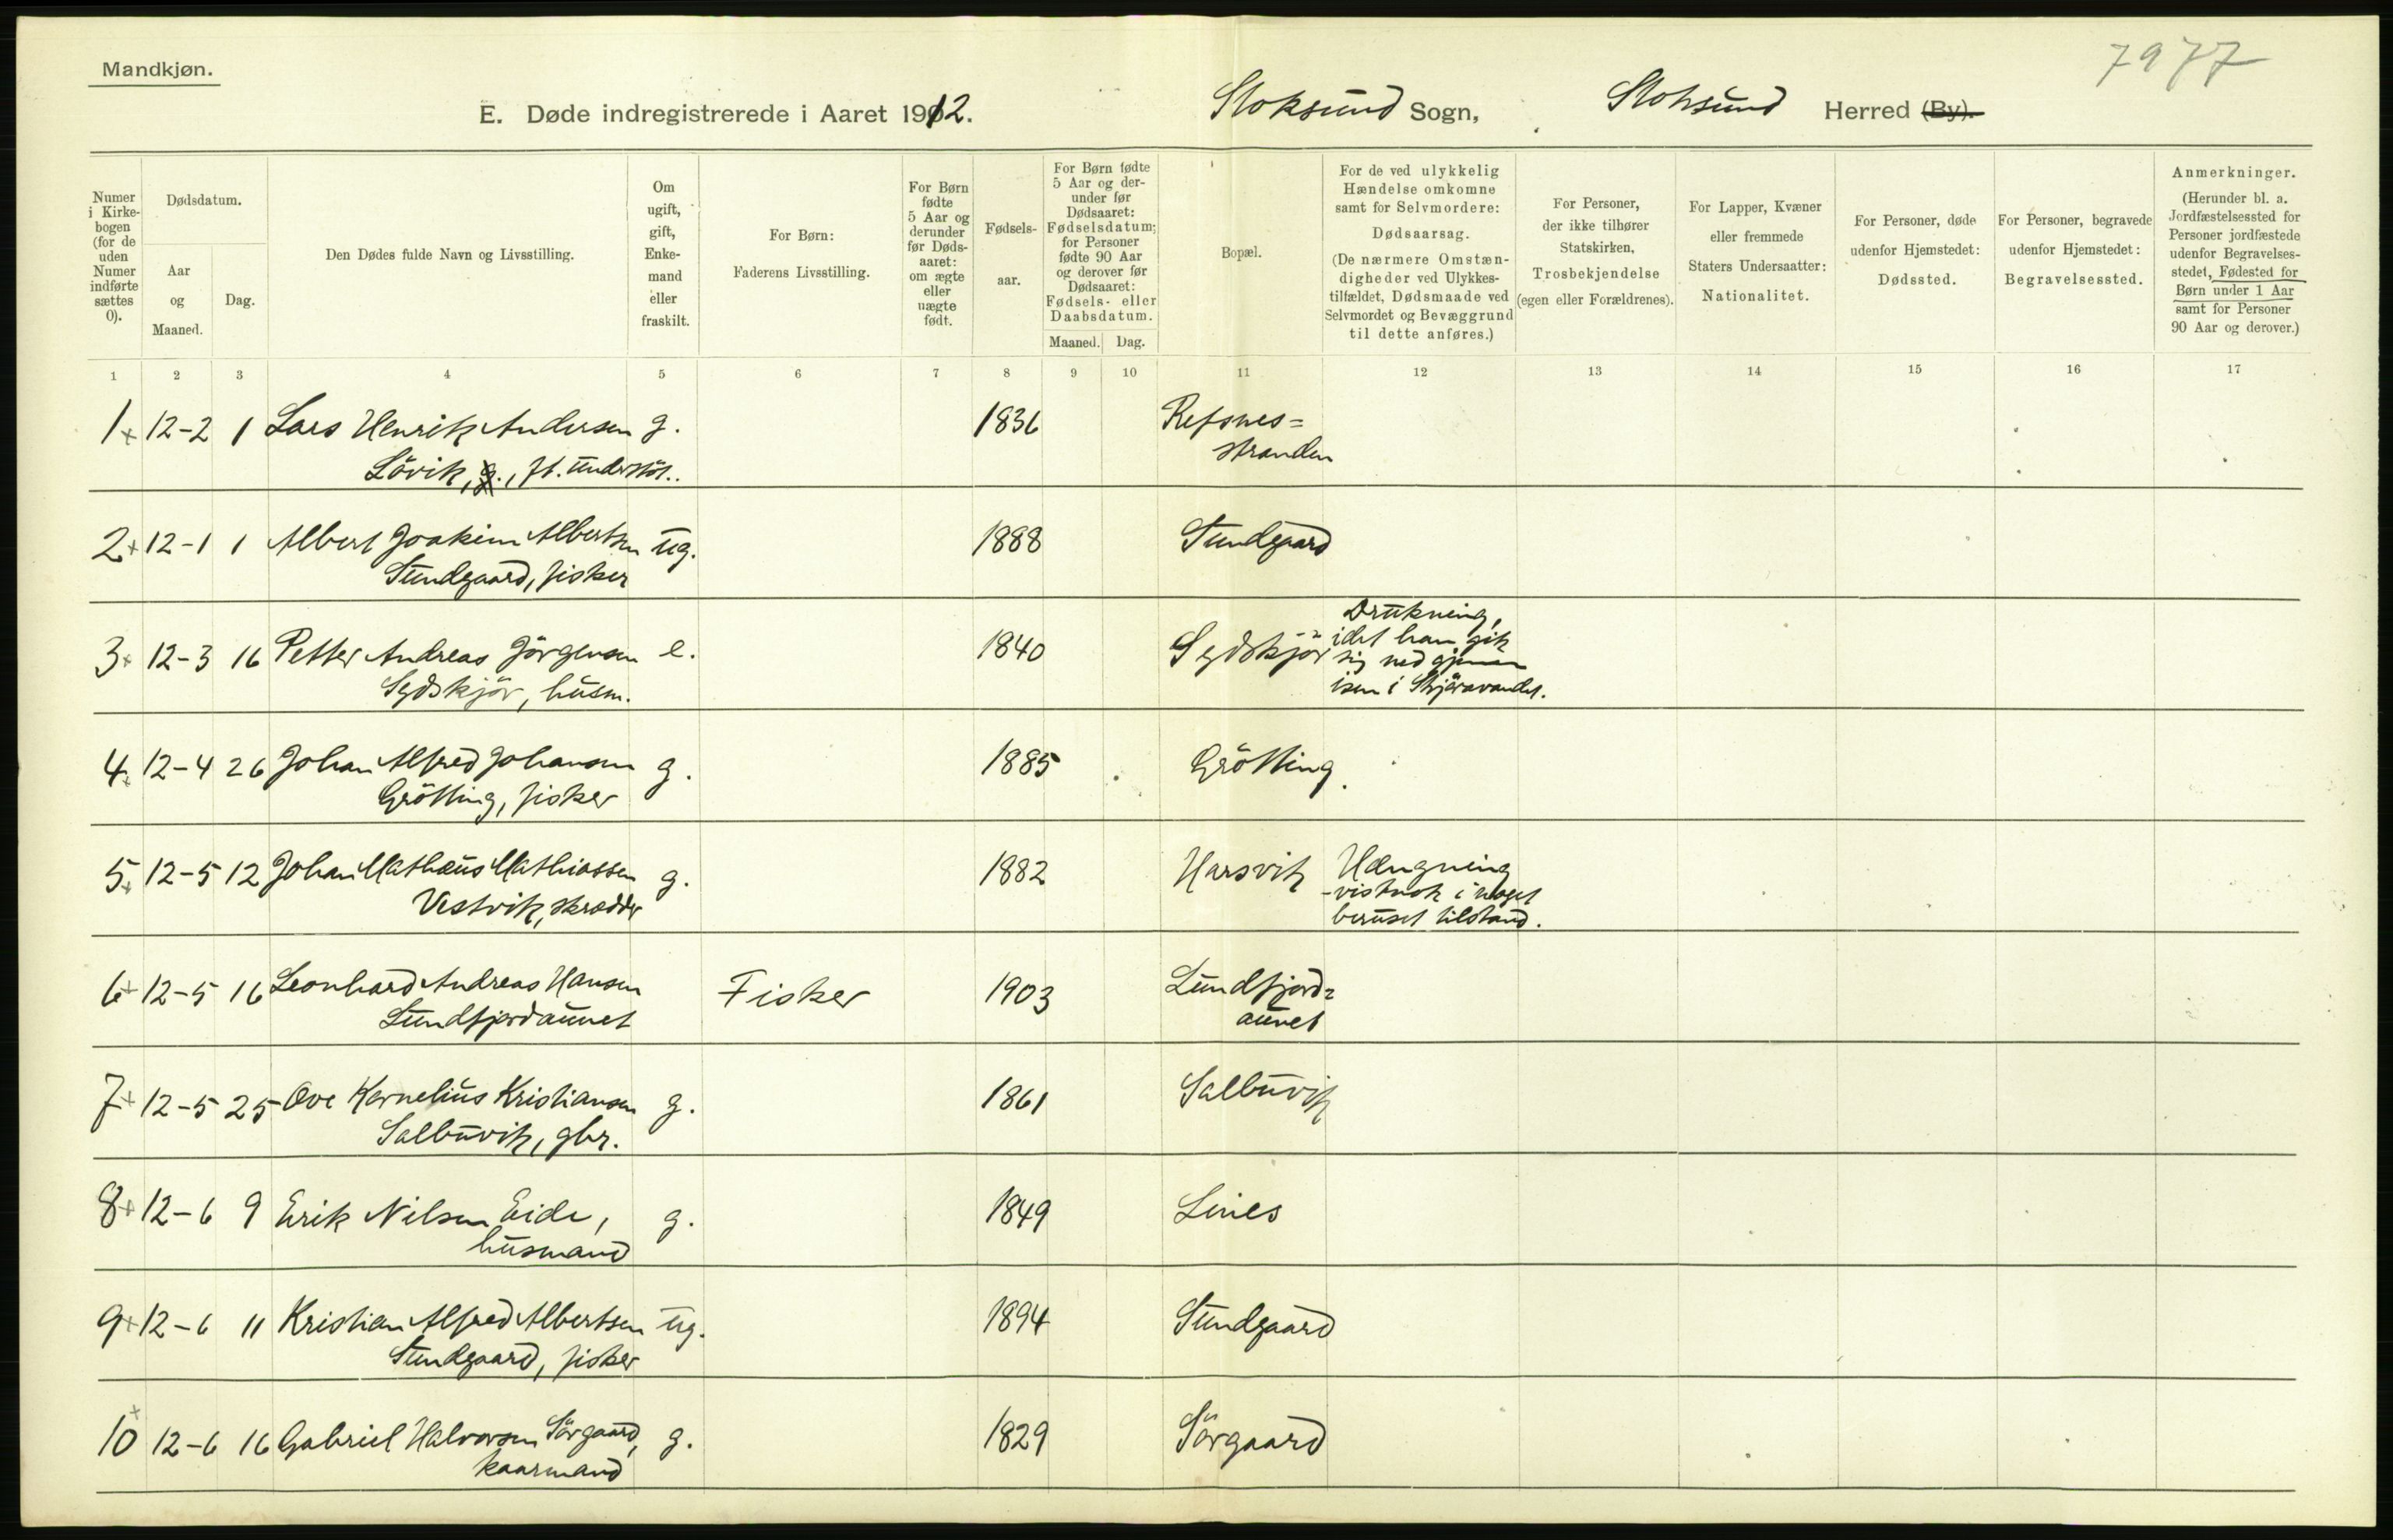 7977
Mandkjøn.
E. Døde indregistrerede i Aaret 1912. Stoksund Sogn, Stoksund Herred (By).
Numer i Kirke-bogen (for de uden Numer indførte sættes 0).
Dødsdatum.
Aar og Maaned.
Dag.
Den Dødes fulde Navn og Livsstilling.
Om ugift, gift, Enke-mand eller fraskilt.
For Børn:
Faderens Livsstilling.
For Børn fødte 5 Aar og derunder før Døds-aaret: om ægte eller uægte født.
Fødsels-aar.
For Børn fødte 5 Aar og der-under før Dødsaaret: Fødselsdatum; for Personer fødte 90 Aar og derover før Dødsaaret: Fødsels- eller Daabsdatum.
Maaned. Dag.
Bopæl.
For de ved ulykkelig Hændelse omkomne samt for Selvmordere:
Dødsaarsag.
(De nærmere Omstæn-digheder ved Ulykkes-tilfældet, Dødsmaade ved Selvmordet og Bevæggrund til dette anføres.)
For Personer, der ikke tilhører Statskirken,
Trosbekjendelse
(egen eller Forældrenes).
For Lapper, Kvæner eller fremmede Staters Undersaatter:
Nationalitet.
For Personer, døde udenfor Hjemstedet:
Dødssted.
For Personer, begravede udenfor Hjemstedet:
Begravelsessted.
Anmerkninger.
(Herunder bl. a. Jordfæstelsessted for Personer jordfæstede udenfor Begravelses-stedet, Fødested for Børn under 1 Aar samt for Personer 90 Aar og derover.)
1 2 3 4 5 6 7 8 9 10 11 12 13 14 15 16 17
1 12-2 1 Lars Henrik Andersen g. 1836 Refsnes=
Lövik, g., ft. understöt. stranden
2 12-1 1 Albert Joakim Albertsen ug. 1888 Sundgaard
Sundgaard, fisker
3 12-3 16 Petter Andreas Jörgensen e. 1840 Sydskjör Drukning,
idet han gik
sig ned gjennem
Sydskjör, husm. isen i Skjöravandet.
4 12-4 26 Johan Alfred Johansen g. 1885 Grötting
Grötting, fisker
5 12-5 12 Johan Mathæus Mathiassen g. 1882 Harsvik Hængning
-vistnok i noget
Vestvik, skrædder beruset tilstand.
6 12-5 16 Leonhard Andreas Hansen Fisker 1903 Sundfjord=
Sundfjordaunet aunet
7 12-5 25 Ove Kornelius Kristiansen g. 1861 Salbuvik
Salbuvik, gbr.
8 12-6 9 Erik Nilsen Eide, g. 1849 Lines
husmand
9 12-6 11 Kristian Alfred Albertsen ug. 1894 Sundgaard
Sundgaard, fisker
10 12-6 16 Gabriel Halvorsen Sörgaard, g. 1829 Sörgaard
kaarmand